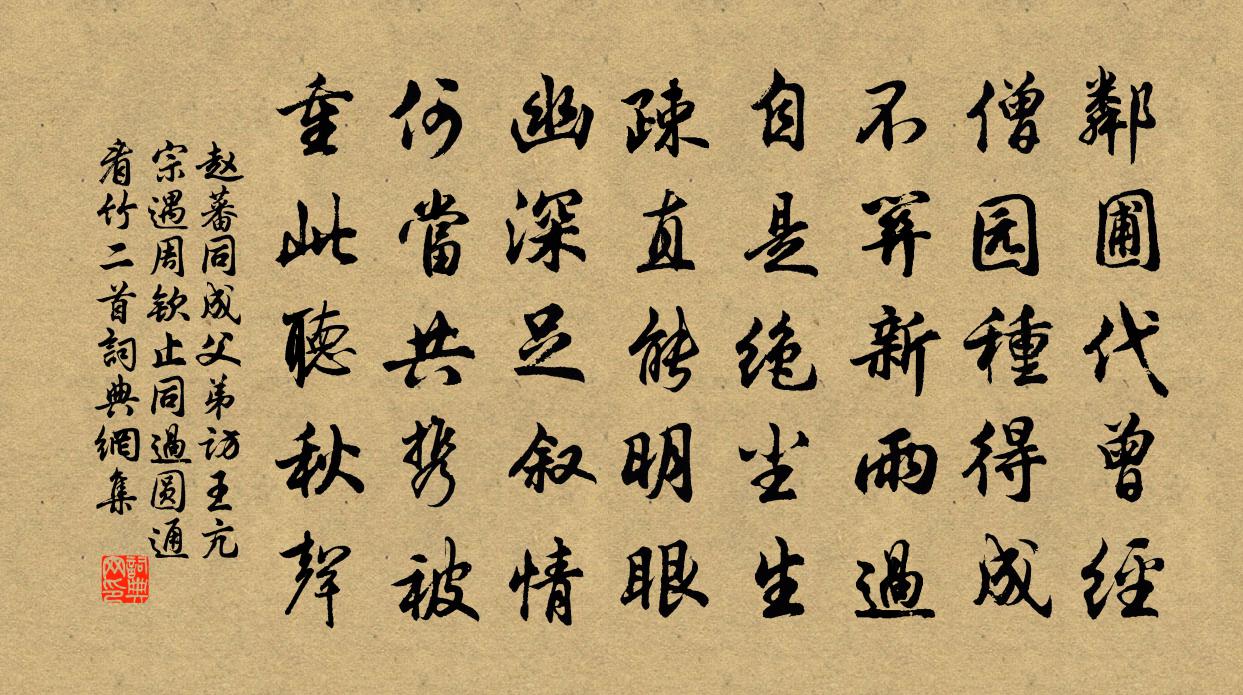 鄰圃代曾經
僧园種得成
不筭新雨過
自是绝尘生
疎直能明眼
幽深足叙情
何當共携被
重此聽秋聲
赵蕃同成父弟访王亢
宗遇周钦止同過圆通
看竹二首詞典網集
詞典
网印